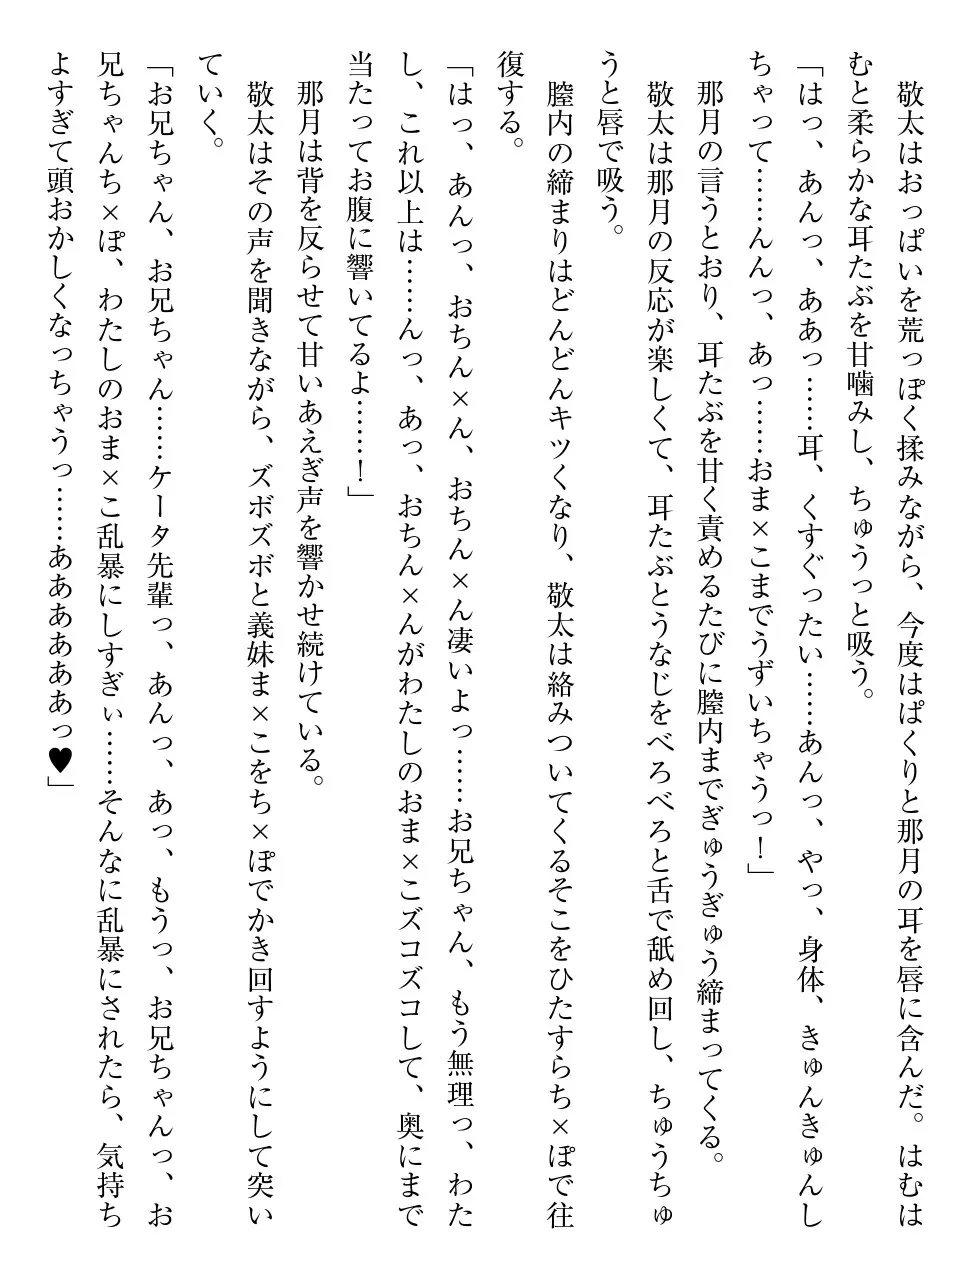 敬太はおっぱいを荒っぽく揉みながら、今度はぱくりと那月の耳を唇に含んだ。はむは
むと柔らかな耳たぶを甘噛みし、ちゅうっと吸う。
「はっ、あんっ、ああっ……耳、くすぐったい……あんっ、やっ、身体、きゅんきゅんし
ちゃって……んんっ、あっ……おま×こまでうずいちゃうっ！」
那月の言うとおり、耳たぶを甘く責めるたびに膣内までぎゅうぎゅう締まってくる。
敬太は那月の反応が楽しくて、耳たぶとうなじをべろべろと舌で舐め回し、ちゅうちゅ
うと唇で吸う。
膣内の締まりはどんどんキツくなり、敬太は絡みついてくるそこをひたすらち×ぽで往
復する。
「はっ、あんっ、おちん×ん、おちん×ん凄いよっ……お兄ちゃん、もう無理っ、わた
し、これ以上は……んっ、あっ、おちん×んがわたしのおま×こズコズコして、奥にまで
当たってお腹に響いてるよ……！」
那月は背を反らせて甘いあえぎ声を響かせ続けている。
敬太はその声を聞きながら、ズボズボと義妹ま×こをち×ぽでかき回すようにして突い
ていく。
「お兄ちゃん、お兄ちゃん……ケータ先輩っ、あんっ、あっ、もうっ、お兄ちゃんっ、お
兄ちゃんち×ぽ、わたしのおま×こ乱暴にしすぎぃ……そんなに乱暴にされたら、気持ち
よすぎて頭おかしくなっちゃうっ……ああああああっ♥」